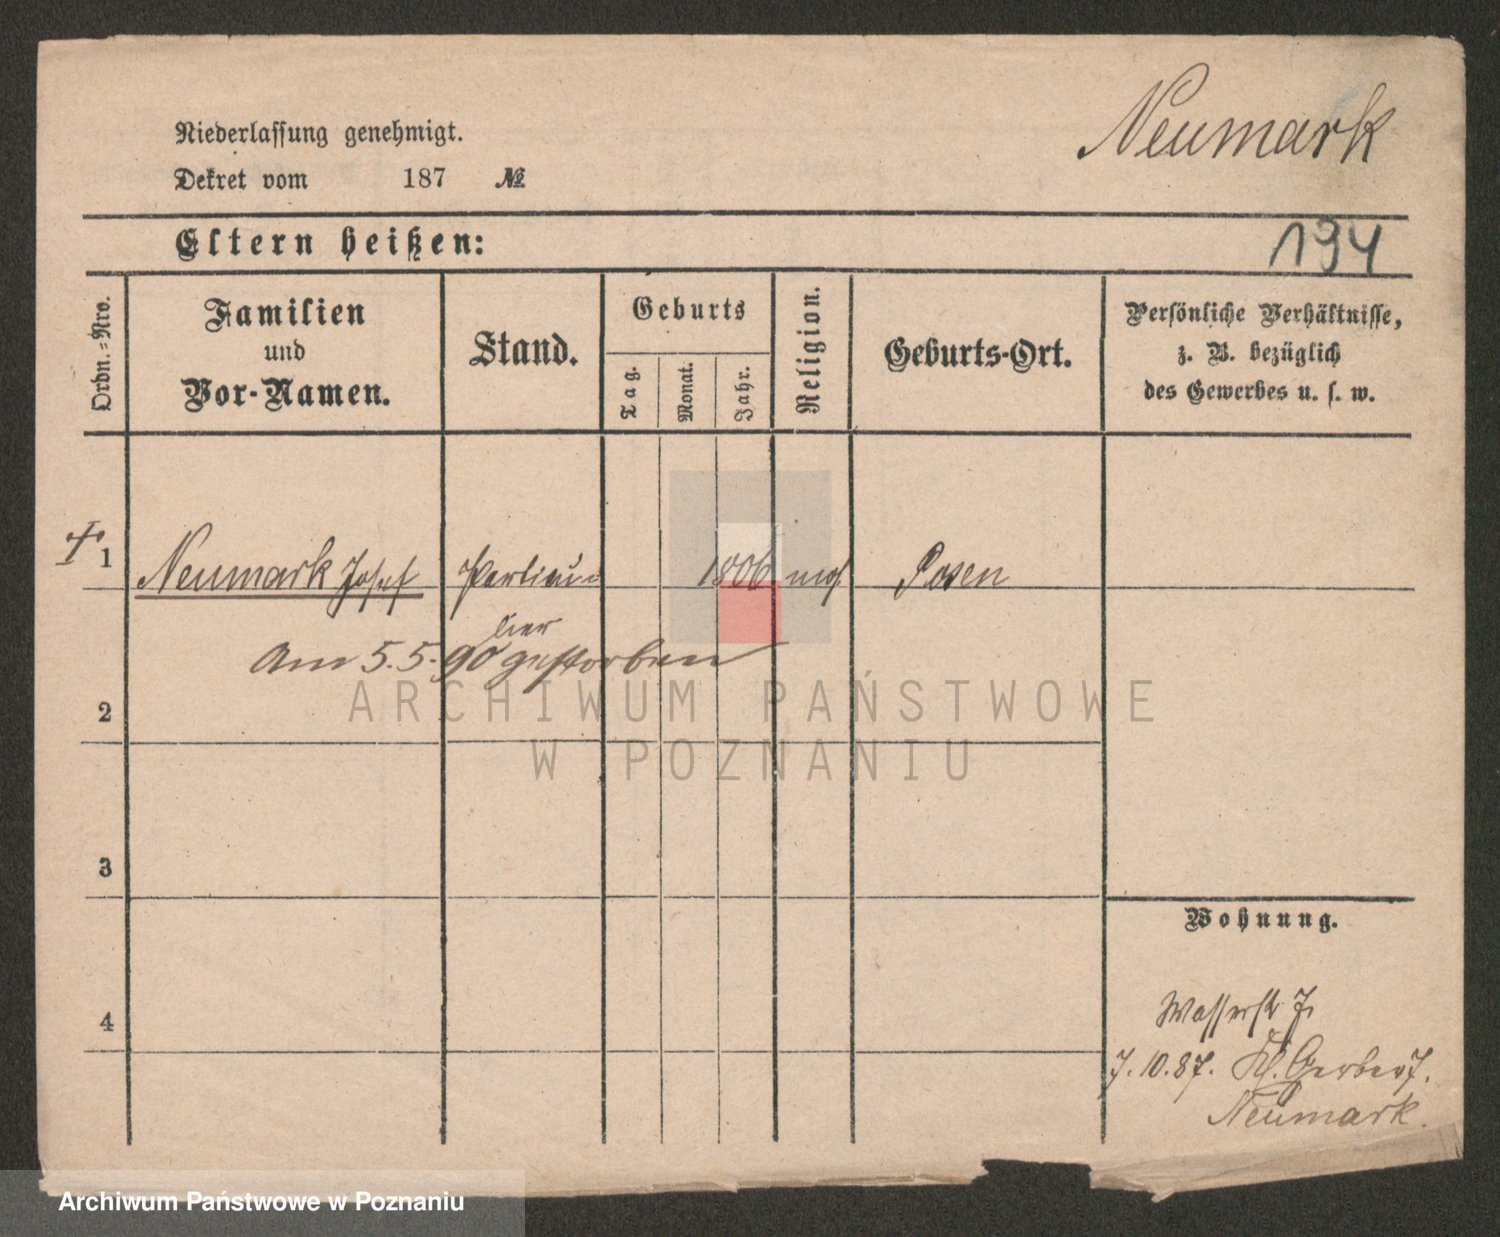 Neumark
Niederlassung genehmigt.
Dekret vom 187 №
Eltern heißen:
194
Ordn.=Nro.
Familien
und
Vor-Namen.
Stand.
Geburts
Tag.
Monat.
Jahr.
Religion.
Geburts-Ort.
Persönliche Verhältnisse,
z. B. bezüglich
des Gewerbes u. s. w.
1 Neumark Josef 1806 mos Posen
hier
Am 5.5.90 gestorben
2
3
4
Wohnung.
Wasserstr 7.
7.10.87. Kl. Gerber 7.
Neumark.
ARCHIWUM PAŃSTWOWE
W POZNANIU
Archiwum Państwowe w Poznaniu